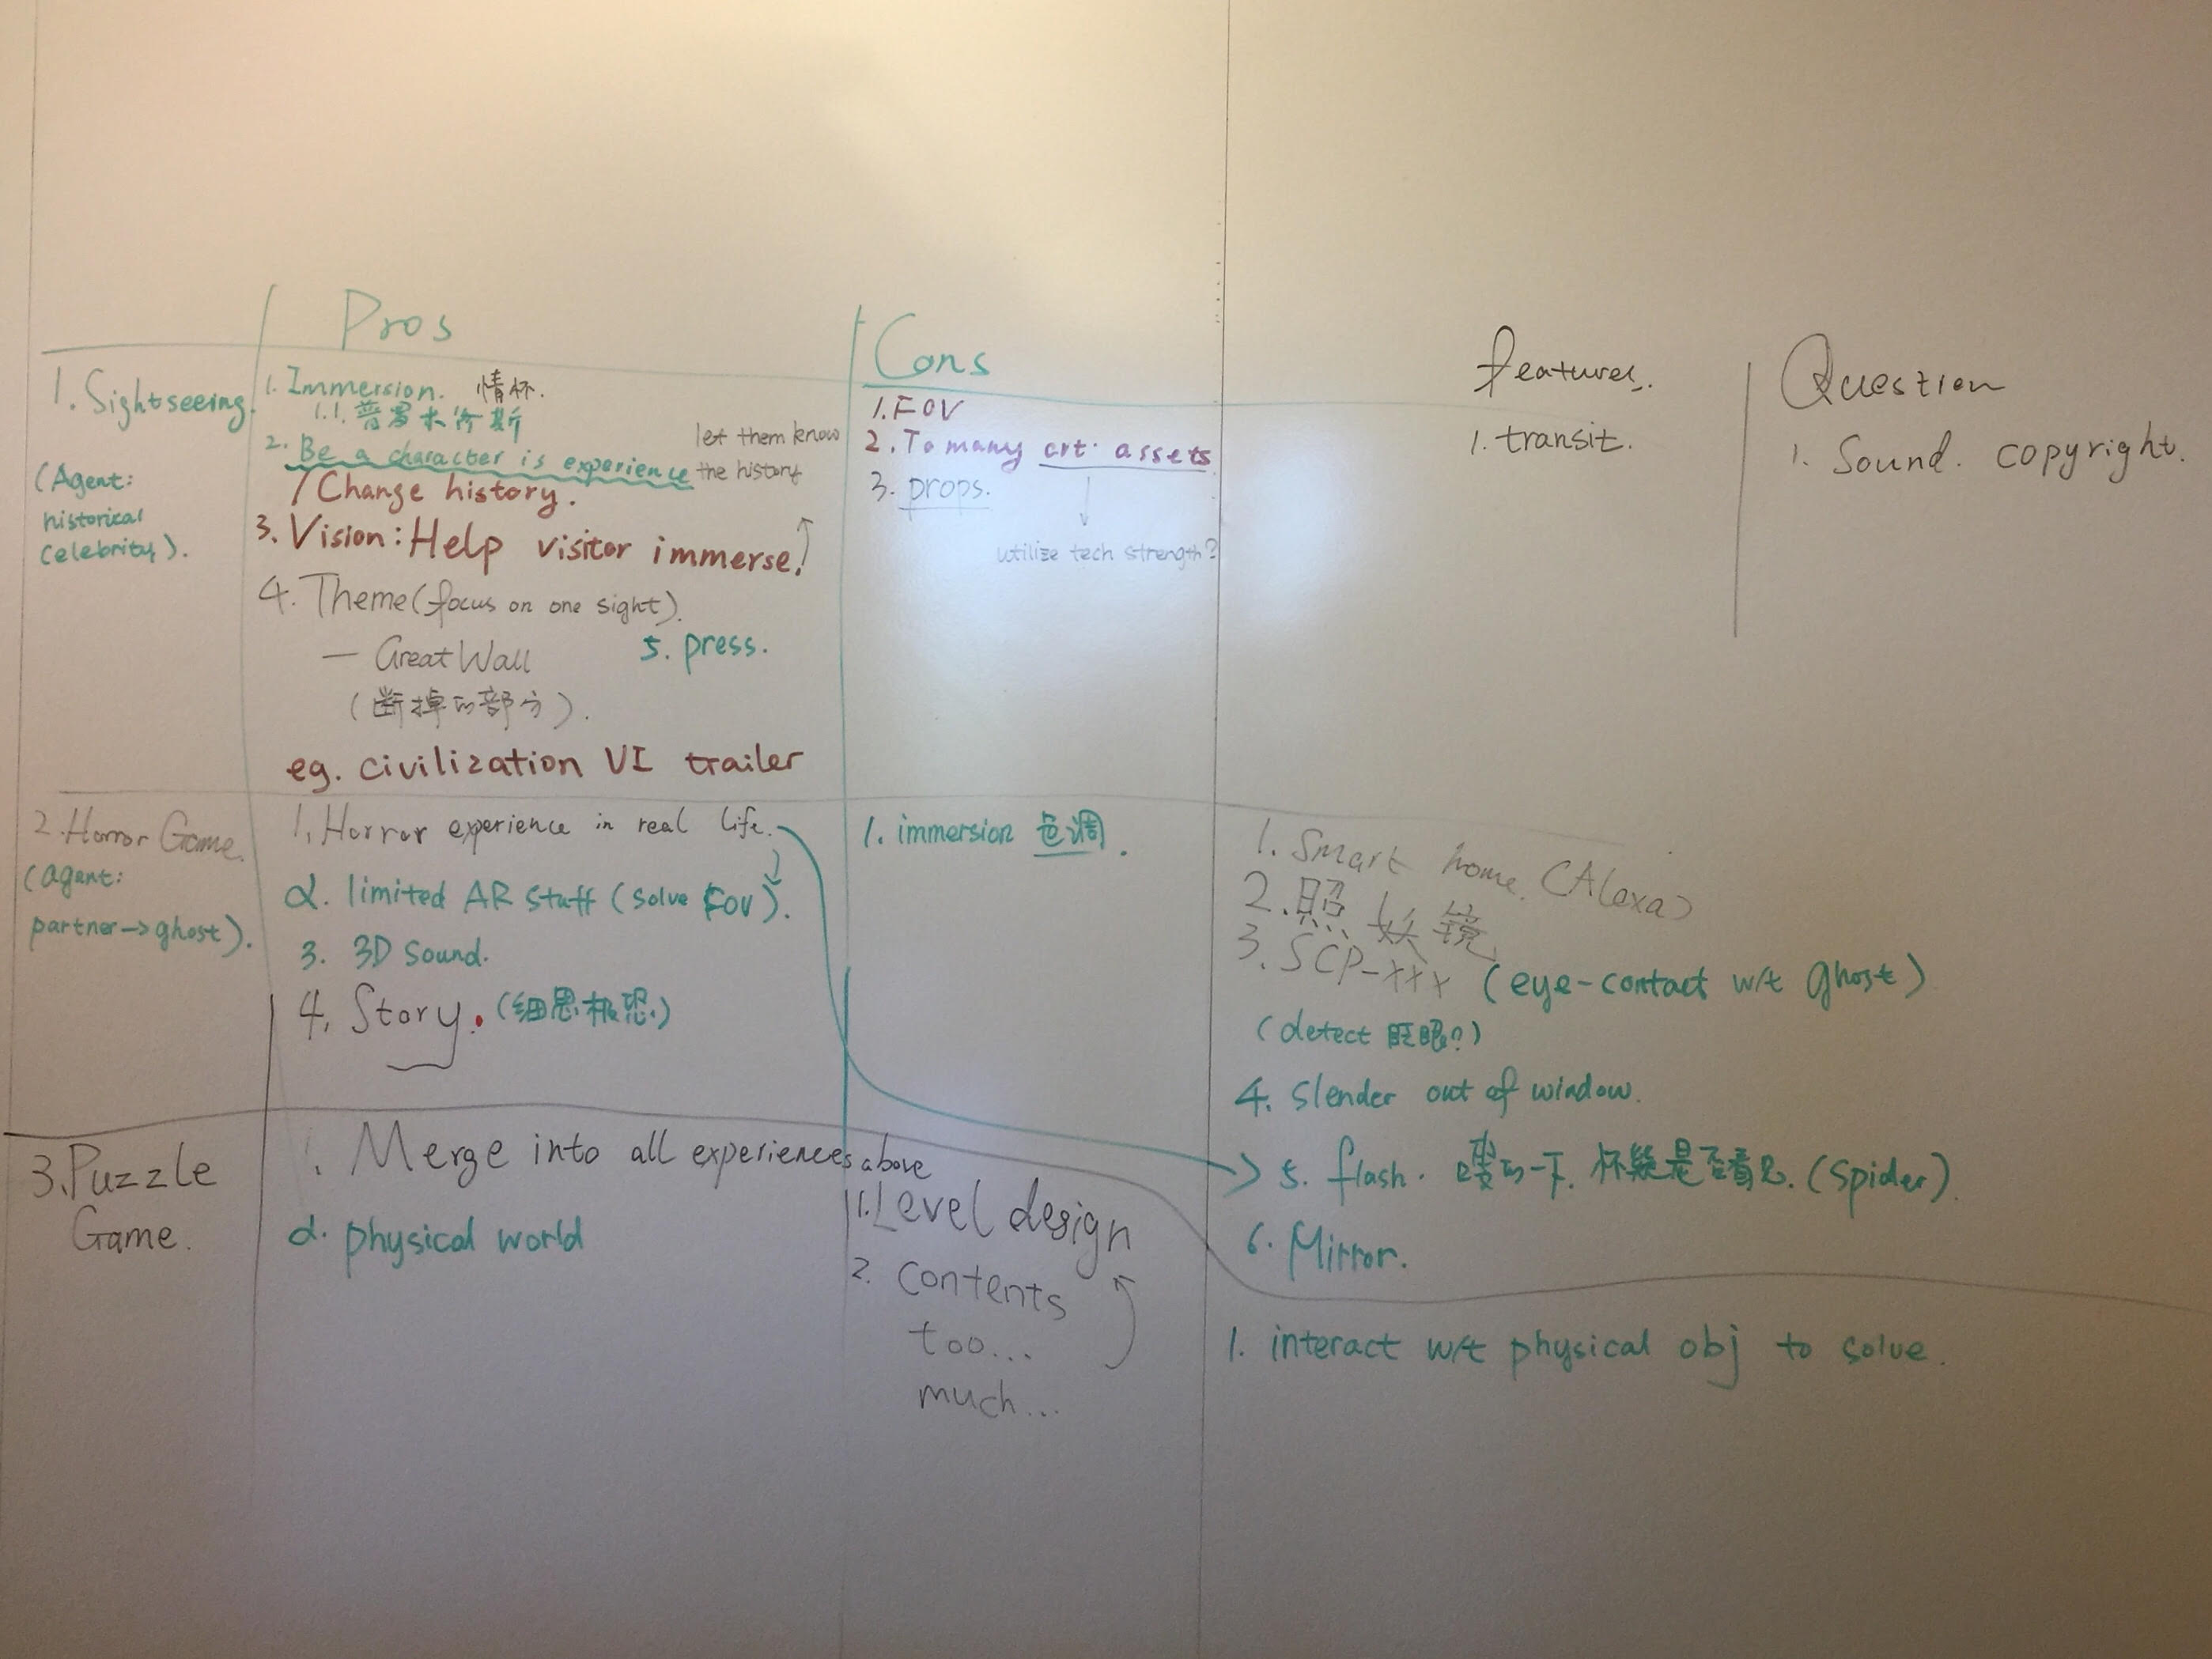 Pros
Cons
features.
Question
1. Sightseeing.
(Agent:
historical
celebrity).
1. Immersion. 情怀.
1.1. 普罗米修斯
2. Be a character is experience
/ Change history.
let them know
the history
3. Vision: Help visitor immerse!
4. Theme (focus on one sight).
— Great Wall
(断掉的部分).
5. press.
eg. civilization VI trailer
1. FOV
2. To many art assets
3. props.
utilize tech strength?
1. transit.
1. Sound. copyright.
2. Horror Game.
(agent:
partner -> ghost).
1. Horror experience in real life.
2. limited AR stuff (solve FOV).
3. 3D sound.
4. Story. (细思极恐)
1. immersion 色调.
1. Smart home. (Alexa)
2. 照妖镜
3. SCP-xxx (eye-contact w/t ghost)
(detect 眨眼?)
4. Slender out of window.
5. flash. 嗖的一下. 怀疑是否看见. (spider).
6. Mirror.
3. Puzzle
Game.
1. Merge into all experiences above
2. physical world
1. Level design
2. contents
too...
much...
1. interact w/t physical obj to solve.